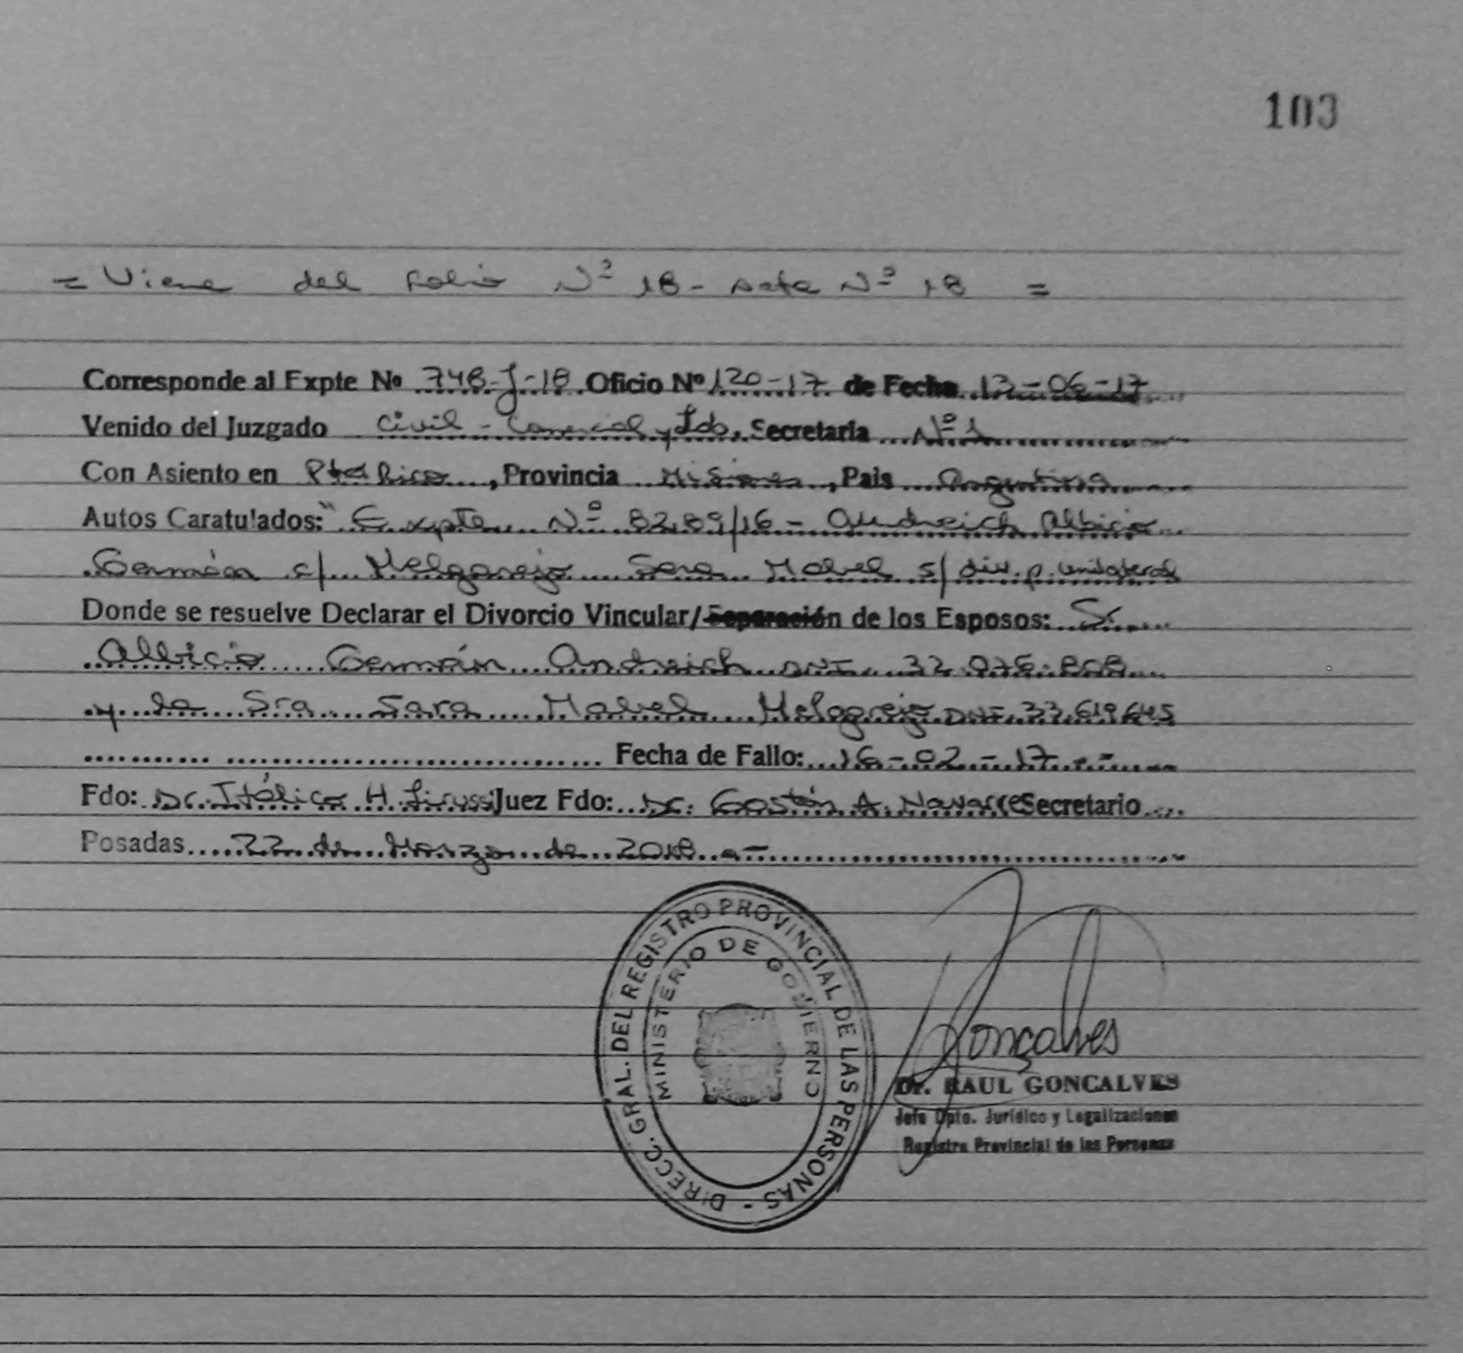 103
= Viene del folio Nº 18 - Acta Nº 18 =
Corresponde al Expte Nº 748-J-18 Oficio Nº 120-17 de Fecha 13-06-17
Venido del Juzgado Civil - Comercial y Lab, Secretaria Nº 1
Con Asiento en Pto Rico, Provincia Misiones, Pais Argentina
Autos Caratulados: "Expte Nº 8289/16 - Andreich Albicio
Germán c/ Melgarejo Sara Mabel s/ div. p. unilateral
Donde se resuelve Declarar el Divorcio Vincular/Separación de los Esposos: Sr.
Albicio Germán Andreich DNI. 32.076.808
y la Sra Sara Mabel Melgarejo DNI. 33.619.645
Fecha de Fallo: 16-02-17
Fdo: Dr. Itálico H. Juez Fdo: Dr. Gastón A. Navarro Secretario
Posadas 22 de Marzo de 2018
DIRECC. GRAL. DEL REGISTRO PROVINCIAL DE LAS PERSONAS -
MINISTERIO DE GOBIERNO
Gonçalves
Dr. RAUL GONCALVES
Jefe Dpto. Jurídico y Legalizaciones
Registro Provincial de las Personas